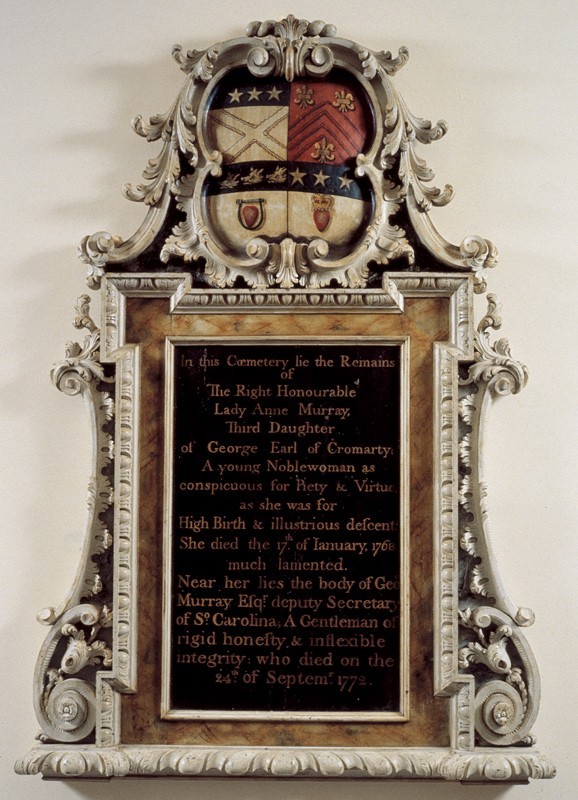 In this Cœmetery lie the Remains
of
The Right Honourable
Lady Anne Murray,
Third Daughter
of George Earl of Cromarty;
A young Noblewoman as
conspicuous for Piety & Virtue
as she was for
High Birth & illustrious deſcent
She died the 17th. of Ianuary, 1768
much lamented.
Near her lies the body of Geo
Murray Eſqr. deputy Secretary
of So. Carolina; A Gentleman of
rigid honeſty & inflexible
integrity: who died on the
24th. of Septemr. 1772.